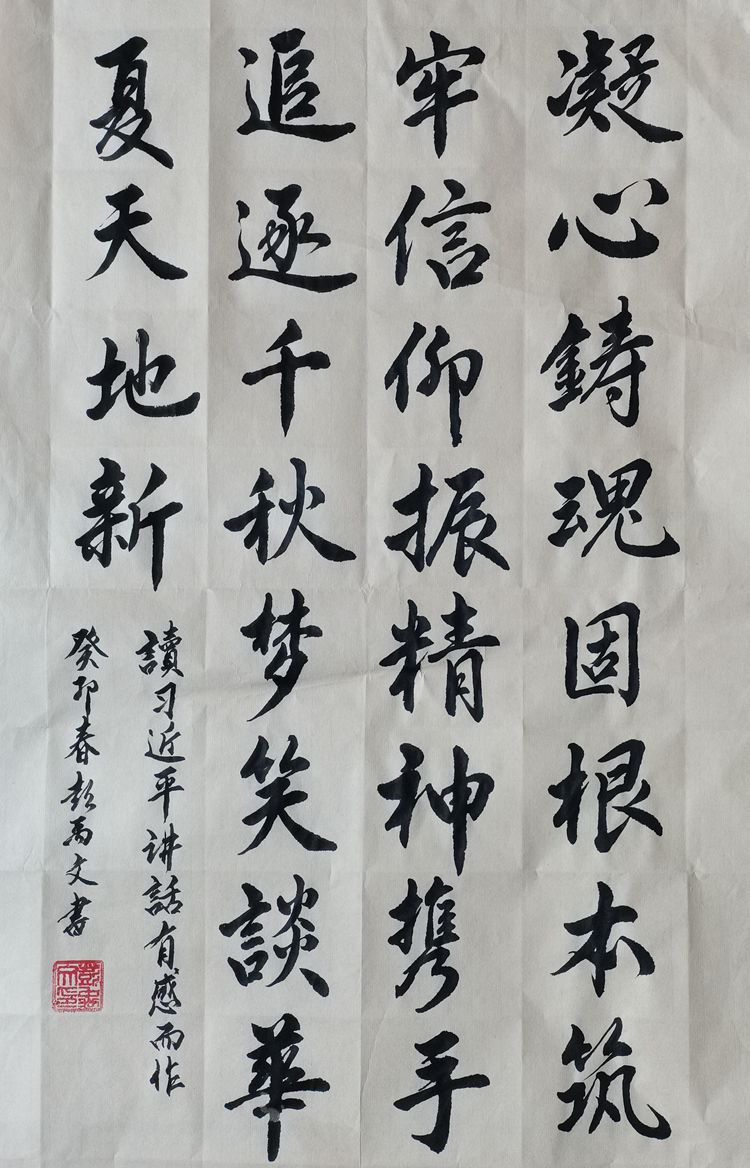 凝心鑄魂固根本筑
牢信仰振精神携手
追逐千秋梦笑談華
夏天地新
讀习近平讲話有感而作
癸卯春彭禹文書